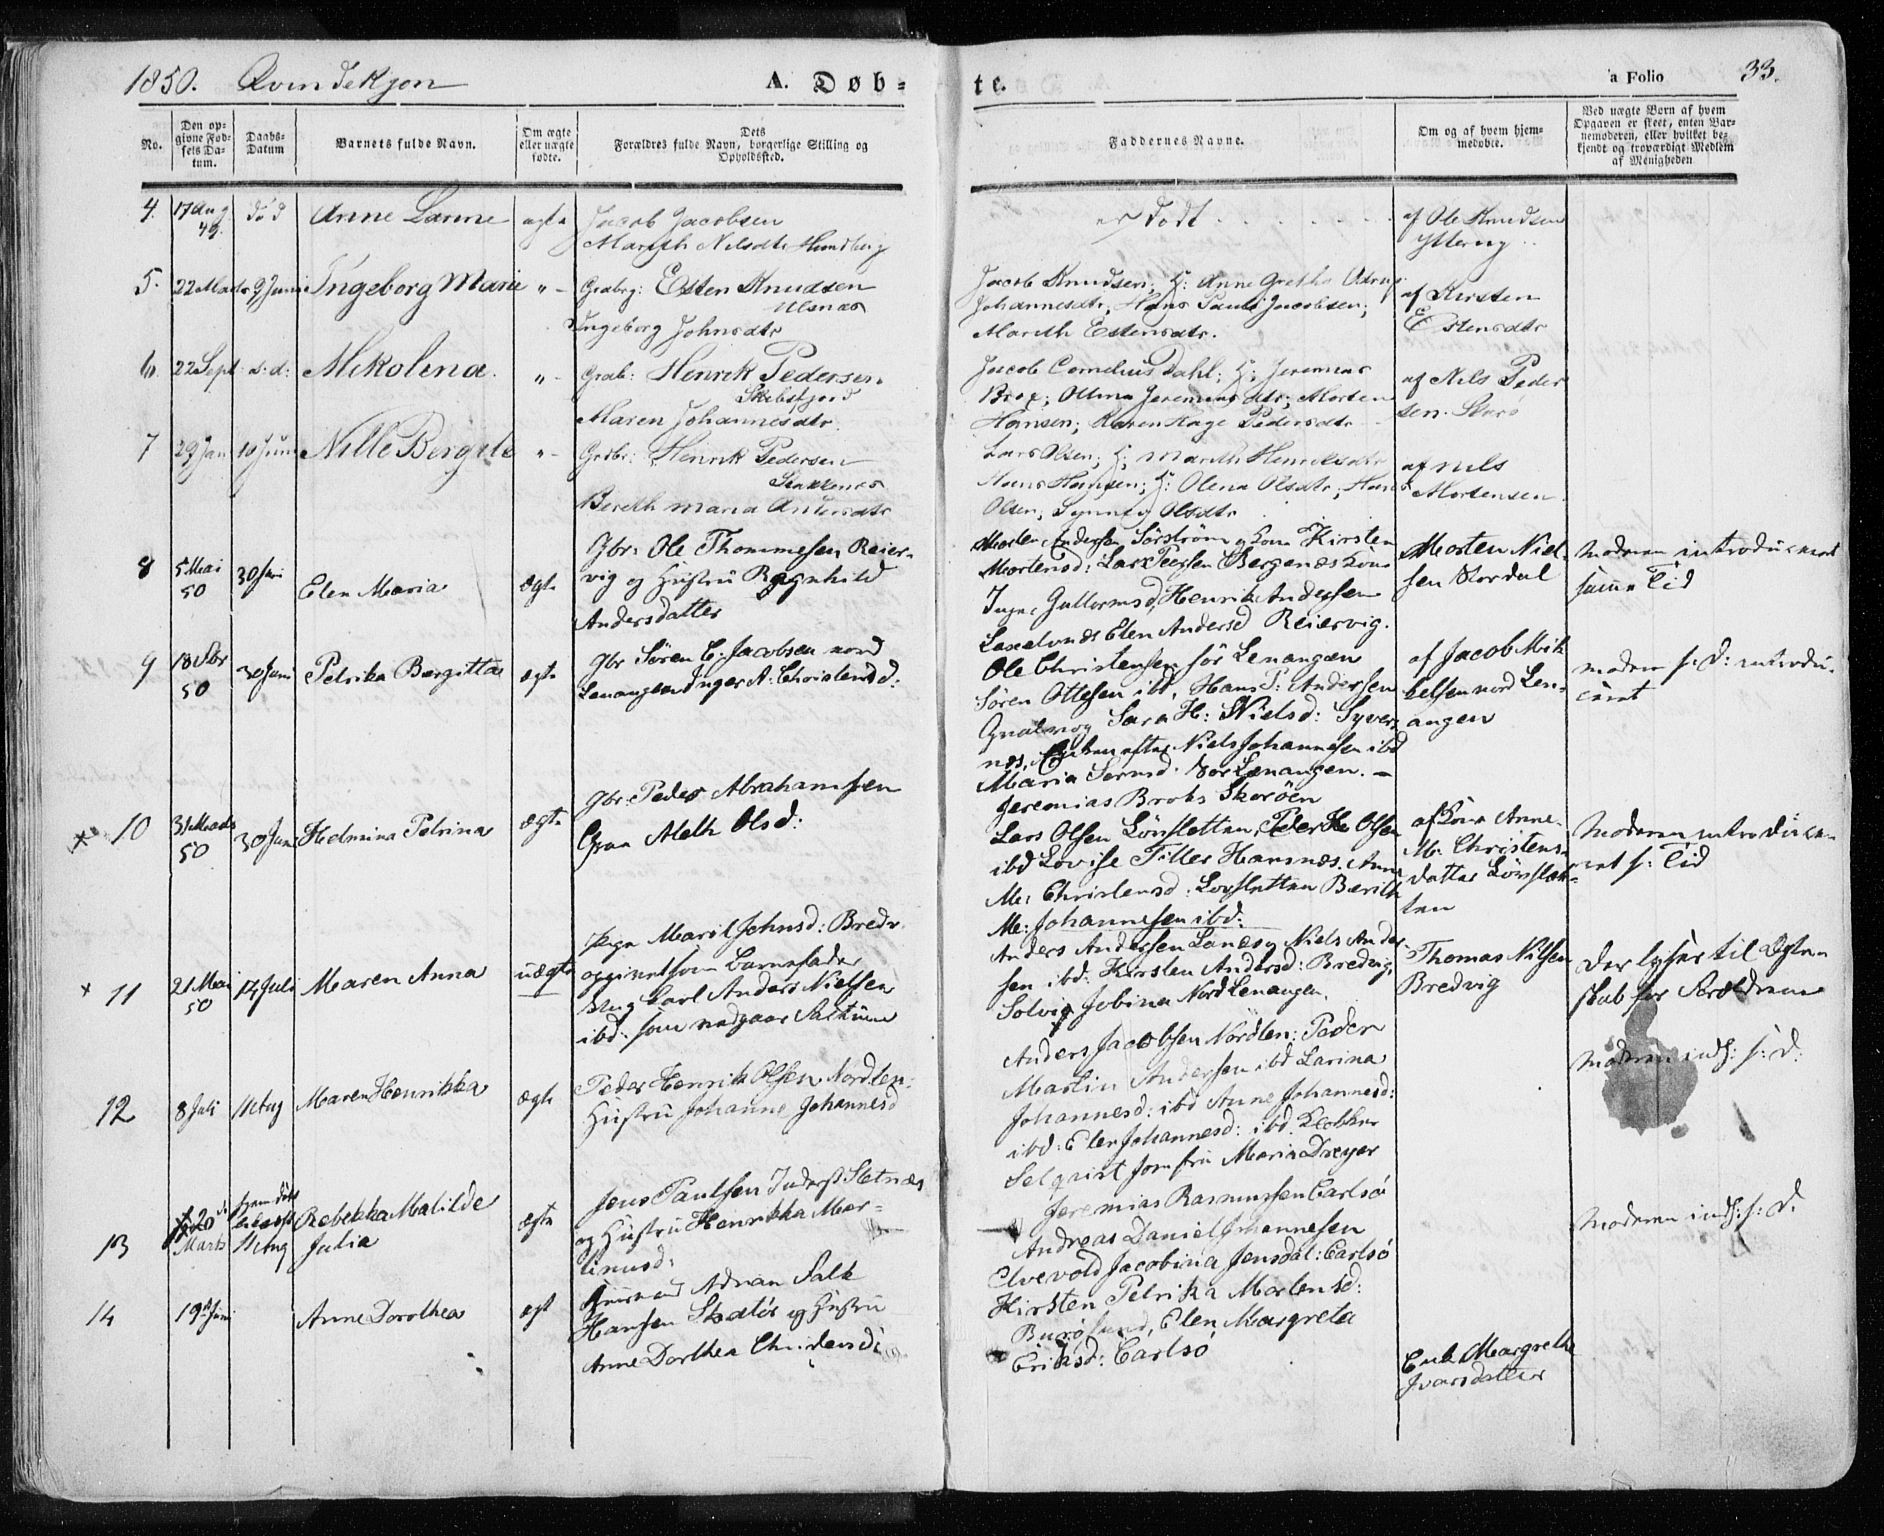 1850. Qvindekjøn A. Døb= te. a Folio 33.
No.
Den op-
givne Fød-
sels Da-
tum.
Daabs-
Datum
Barnets fulde Navn.
Om ægte
eller uægte
fødte.
Dets
Forældres fulde Navn, borgerlige Stilling og
Opholdssted.
Faddernes Navne.
Om og af hvem hjem-
medøbte.
Ved uægte Børn af hvem
Opgaven er skeet, enten Bar-
nemoderen, eller hvilket be-
kjendt og troværdigt Medlem
af Menigheden
4. 17 Aug 49. død Anne ægte
Jacob Jacobsen
Mareth Nilsdtr
er Dødt
af Ole Knudsen
Ytterny
5. 22 Marts 9 Juni Ingeborg Marie "
Grdbrg: Esten Knudsen
Ulsnæs
Ingeborg Johnsdtr
Jacob Knudsen; H: Anne Grethe
Johannesdtr, Hans Paul Jacobsen;
Mareth Estensdtr.
af Kirsten
Estensdtr
6. 22 Sept s: d: Nikolena. "
Grdb: Henrik Pedersen
Skibsfjord
Maren Johannesdtr.
Jacob Cornelius Dahl; H: Jeremias
Brox; Olina Jeremiasdtr; Morten
Hansen; Karen Hage Pedersdtr
af Nils Peder
sen. Skarø
7 29 Jan 10 Juni Nille Bergite "
Grdbr: Henrik Pedersen
Stakkenes
Bereth Maria Andersdtr
Lars Olsen; H: Mareth Henriksdtr
Hans Hansen; H: Olena Olsdtr; Hans
Olsen; Synnev Olsdtr
af Nils
Mortensen
8 5 Mai 50 30 Juni Elen Maria ægte
Gbr: Ole Thommesen Reier-
vig og Hustru Ragnhild
Andersdatter
Morten Andersen Sörström og Kone Kirsten
Mortensd: Lars Peersen Bergenes Kone
Inger Guttormsd, Henrik Andersen
Laxelvnes Elen Andersd Reiervig.
Morten Niel
sen Stordal
Moderen introduceret
samme Tid
9 18 50 30 Juni Petrika Bergitta ægte
Gbr Sören C: Jacobsen nord
Lenangen Inger A: Christensd:
Ole Christensen sör Lenangen
Sören Ottesen ibd, Hans P: Andersen
Sara H: Nielsd: Syver-
nes, Niels Johannesen ibd
Maria Sörensd: Sör Lenangen.
af Jacob Mik
kelsen nord Len-
angen
moderen s: D: introdu-
ceret
× 10 31 Marts 50 30 Juni Helmina Petrina ægte
Gbr: Peder Abrahamsen
Grøn Aleth Olsd:
Jeremias Broks Skorøen
Lars Olsen Lönsletten, Peder H Olsen
ibd Lovise Tiller Hansnæs. Anne
M: Christensd: Lovsletten Bærith
M: Johannesen ibd:
af Kone Anne
M: Christens-
datter Lönslet-
ten
Moderen introduce-
ret s: Tid
× 11 21 Mai 50 14 Juli Maren Anna uægte
Pige Marit Johnsd: Bredv.
opgivet som Barnefader
Ung Carl Anders Nielsen
ibd: som vedgaar Factum
Anders Andersen Lanes, Niels Ander-
sen ibd: Kirsten Andersd: Bredvig,
Solvig Jobina Nord Lenangen.
Thomas Nilsen
Bredvig
Der lyser til Ægte-
skab for Forældrene
12 8 Juli 11 Aug Maren Henrikka ægte
Peder Henrik Olsen Nordlen:
Hustru Johanne Johannesd
Anders Jacobsen Nordlen: Peder
Martin Andersen ibd Larina
Johannesd: ibd Anne Johannesd:
ibd: Elen Johannesd: ibd.
Moderen indl: s: D:
13 20 Marts 11 Aug Rebekka Matilde
Julia ægte
Jens Paulsen Slettnæs
og Hustru Henrikka Mar-
tinusd:
Klokker
Selqvist Jomfru Maria Dreyer
Jeremias Rasmussen Carlsø
Andreas Daniel Johannesen
Elvevold Jacobina Jensdat: Carlsø
Moderen indl: s: D.
14 19de Juni Anne Dorothea ægt
Huusmand Adrian Falk
Hansen Skatör og Hustru
Anne Dorthea Christensd:
Kirsten Petrika Mortensd:
Burøsund, Elen Margreta
Eriksd: Carlsø
Enk Margrethe
Ivarsdatter